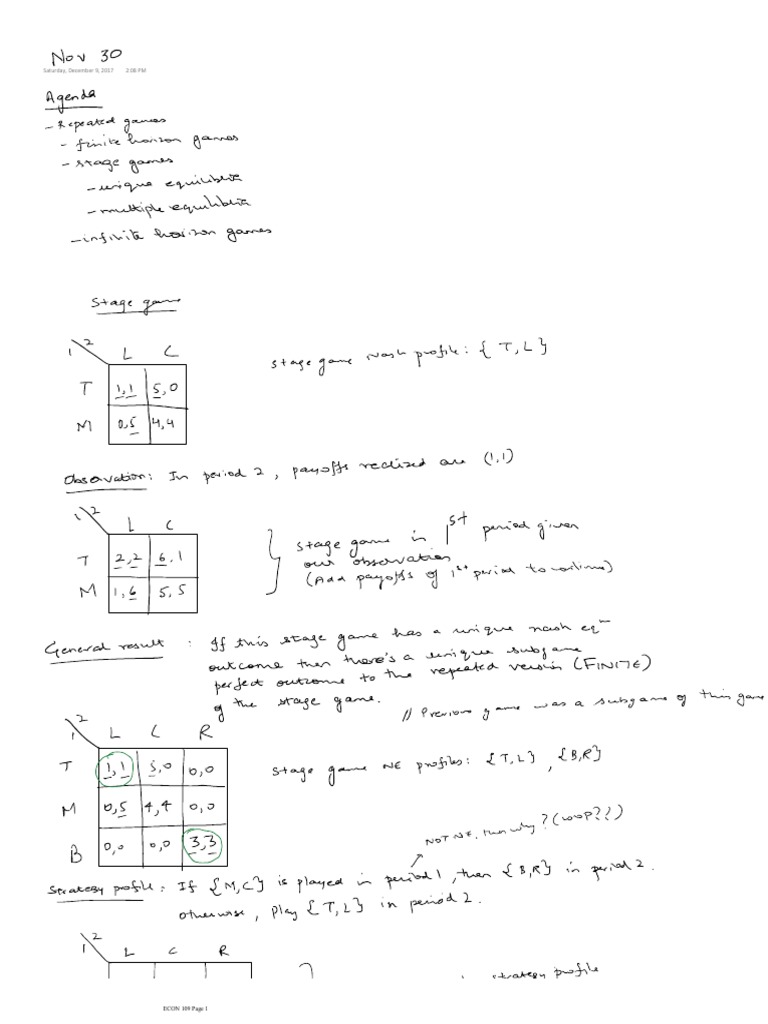 Nov 30
Saturday, December 9, 2017 2:08 PM
Agenda
- Repeated games
- finite horizon games
- stage games
- unique equilibria
- multiple equilibria
- infinite horizon games
Stage game
1 2
L C
T 1,1 5,0
M 0,5 4,4
Stage game Nash profile: { T, L }
Observation: In period 2, payoffs realized are (1,1)
1 2
L C
T 2,2 6,1
M 1,6 5,5
Stage game in 1st period given
our observation
(Add payoffs of 1st period to realtime)
General result : If this stage game has a unique nash eqm
outcome then there's a unique subgame
perfect outcome to the repeated version (FINITE)
of the stage game.
// Previous game was a subgame of this game
1 2
L C R
T 1,1 5,0 0,0
M 0,5 4,4 0,0
B 0,0 0,0 3,3
Stage game NE profiles: {T,L} , {B,R}
NOT NE, then why? (loop??)
Strategy profile: If {M,C} is played in period 1, then {B,R} in period 2.
otherwise, play {T,L} in period 2.
1 2
L C R
strategy profile
ECON 109 Page 1